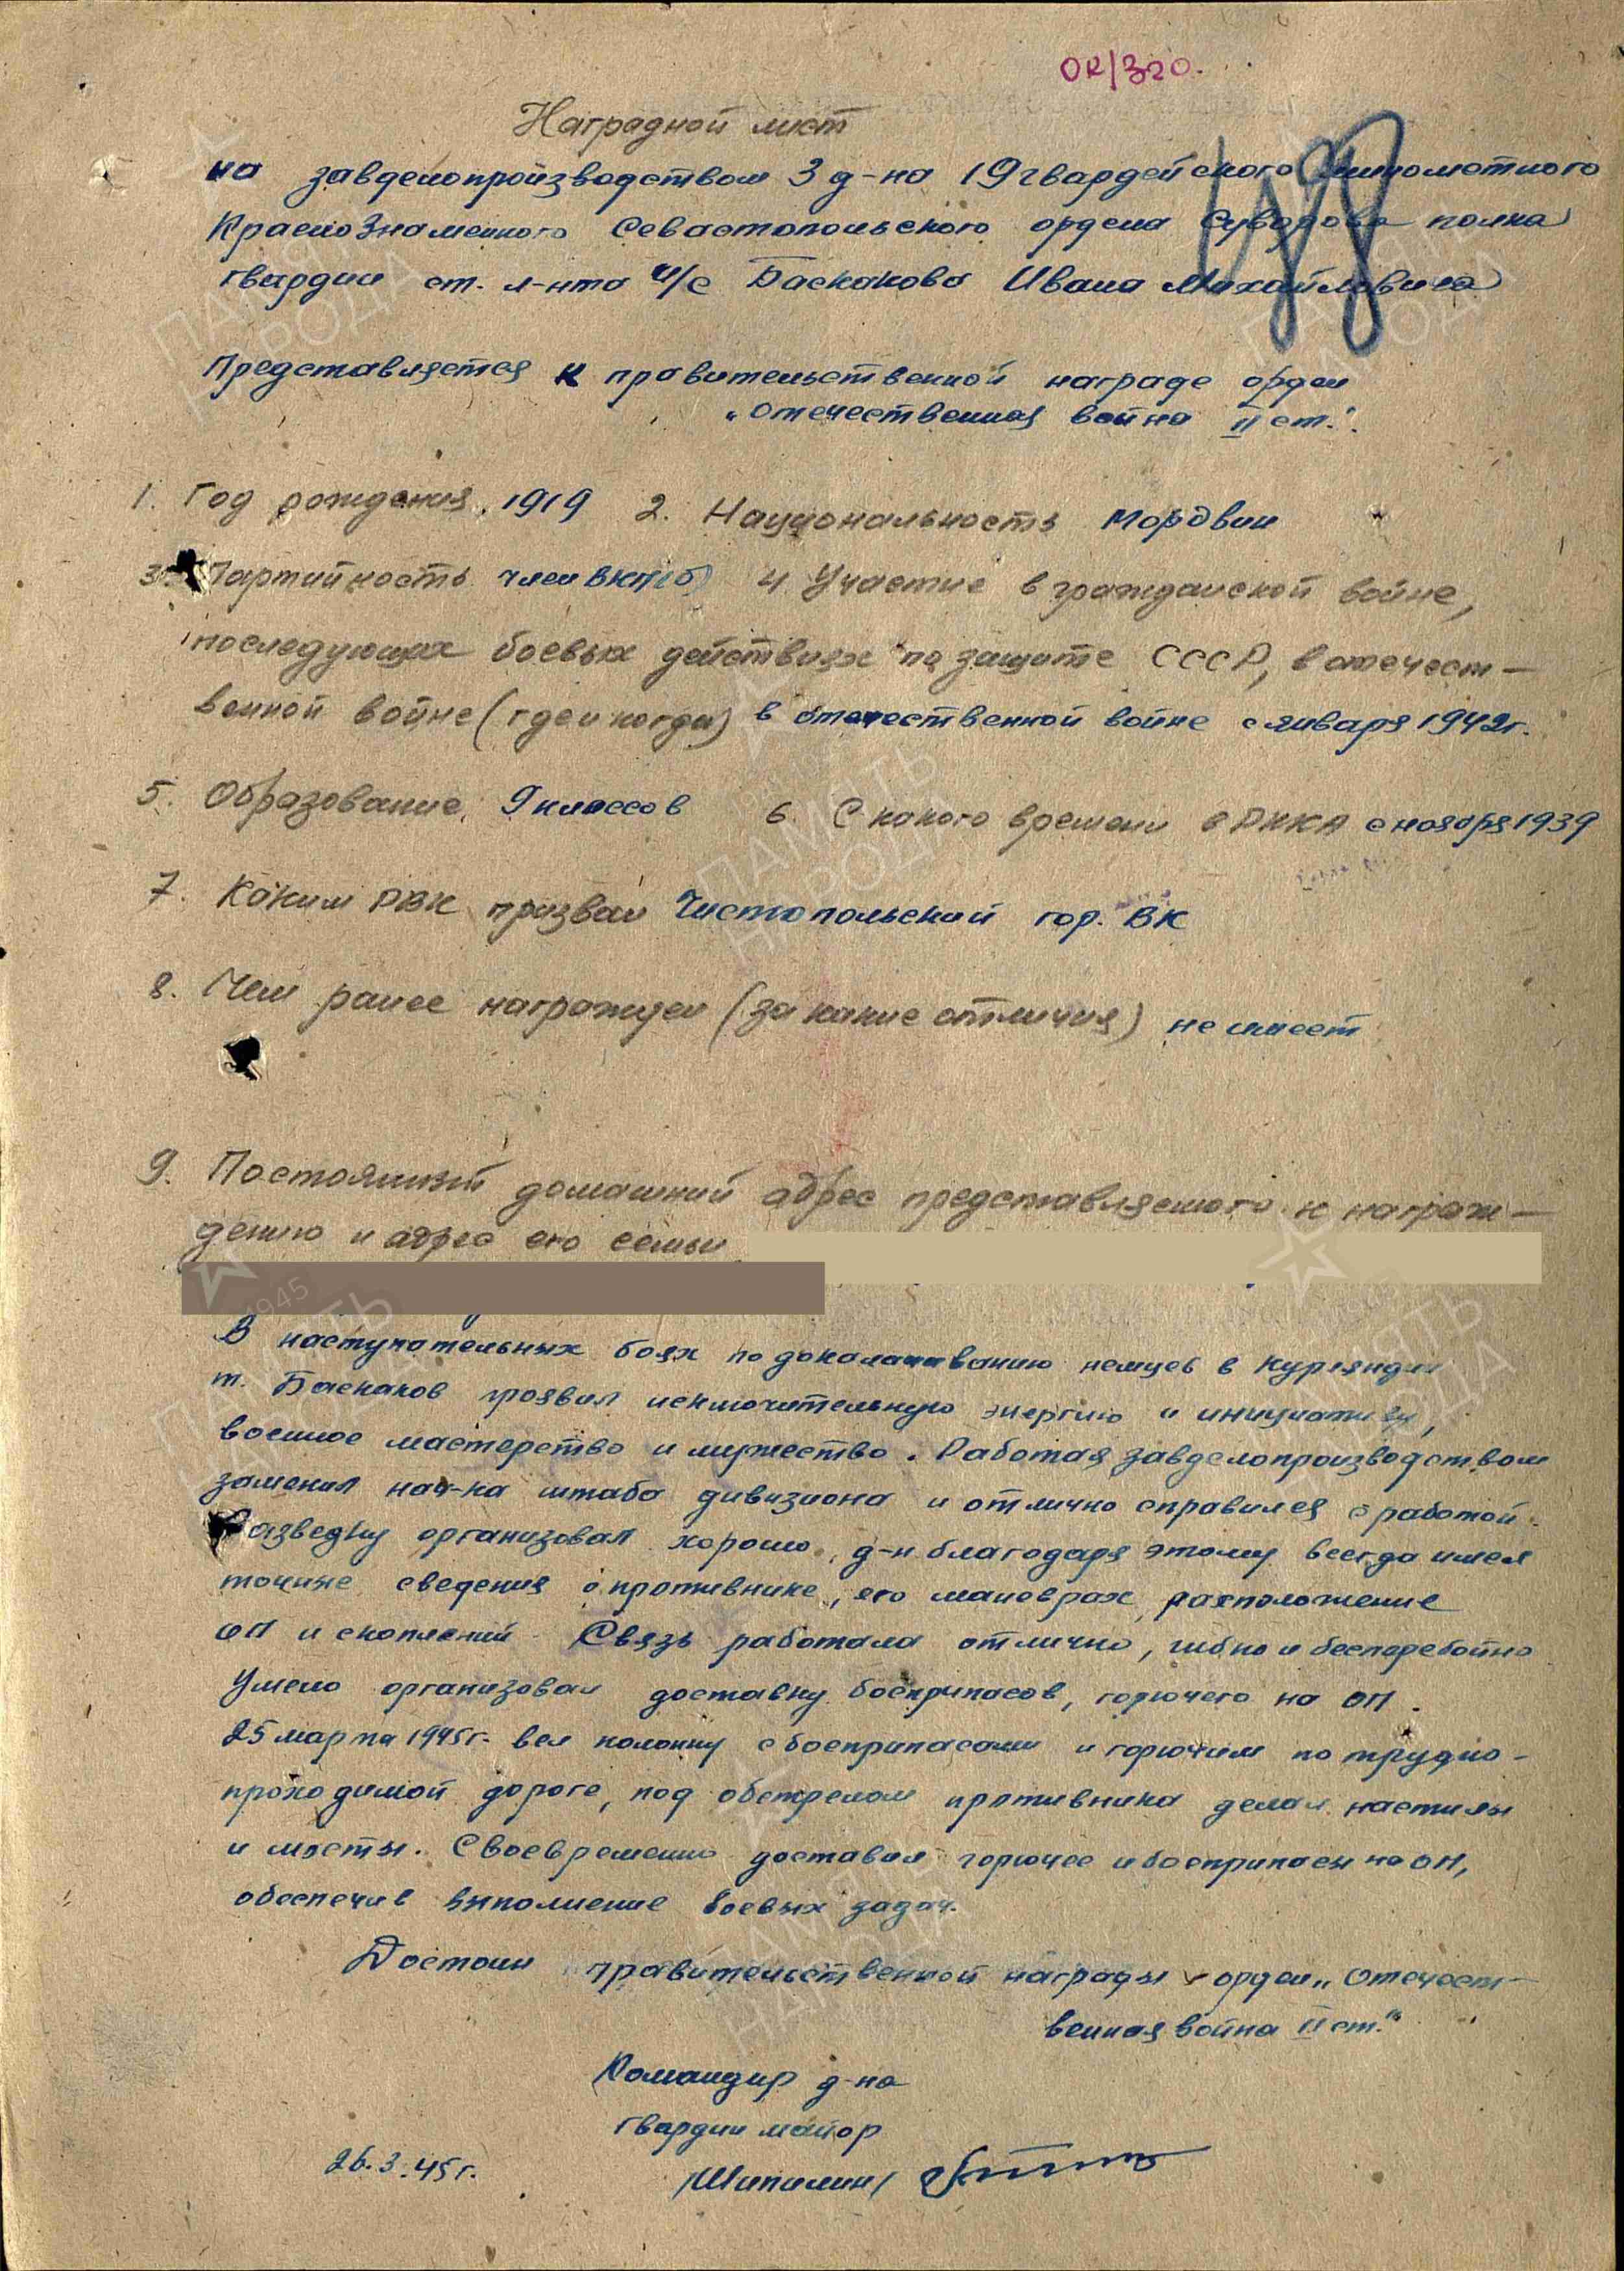 ОК/320.
Наградной лист
на завделопроизводством 3 д-на 19 гвардейского минометного
Краснознаменного Севастопольского ордена Суворова полка
гвардии ст. л-нта и/с Баскакова Ивана Михайловича
Представляется к правительственной награде орден
„Отечественная война II ст."
1. Год рождения 1919 2. Национальность мордвин
3. Партийность член ВКП(б) 4. Участие в гражданской войне,
последующих боевых действиях по защите СССР, в отечест-
венной войне (где и когда) в отечественной войне с января 1942г.
5. Образование 9 классов 6. С какого времени в РККА с ноября 1939
7. Каким РВК призван Чистопольский гор. ВК
8. Чем ранее награжден (за какие отличия) не имеет
9. Постоянный домашний адрес представляемого к награж-
дению и адрес его семьи
В наступательных боях по доколачиванию немцев в Курляндии
т. Баскаков проявил исключительную энергию и инициативу,
военное мастерство и мужество. Работая завделопроизводством
заменял нач-ка штаба дивизиона и отлично справился с работой.
Разведку организовал хорошо, д-н благодаря этому всегда имел
точные сведения о противнике, его маневрах, расположение
ОП и скоплений. Связь работала отлично, гибко и бесперебойно
Умело организовал доставку боеприпасов, горючего на ОП.
25 марта 1945г. вел колонну с боеприпасами и горючим по трудно-
проходимой дороге, под обстрелом противника делал настилы
и мосты. Своевременно доставил горючее и боеприпасы на ОП,
обеспечив выполнение боевых задач.
Достоин правительственной награды орден „Отечест-
венная война II ст."
Командир д-на
гвардии майор
26.3.45г. /Шипилин/
ПАМЯТЬ
НАРОДА